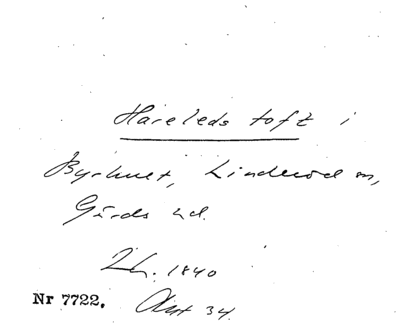 Hareleds toft i
Byrhuet, Linderöd sn,
Gärds hd.
Lh. 1840
Nr 7722. Akt 34.